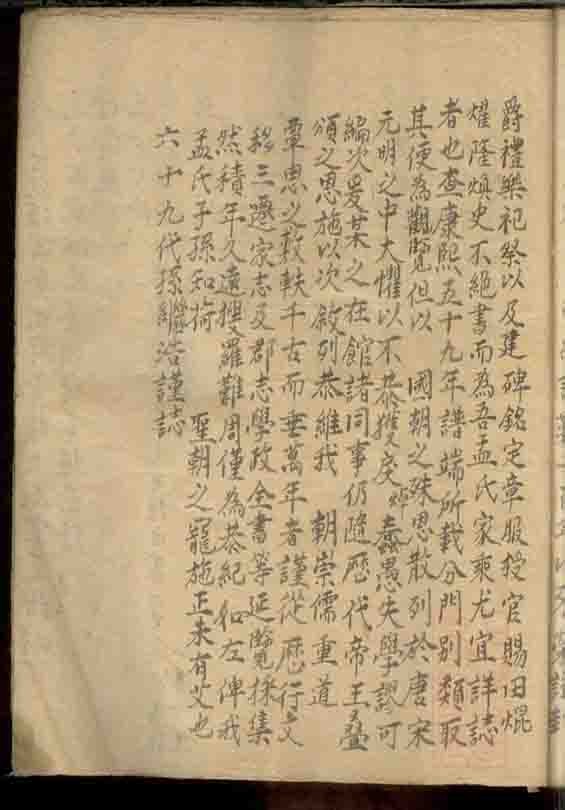 爵禮樂祀祭以及建碑銘定章服授官賜田焜
燿隆煥史不絕書而為吾孟氏家乘尤宜詳誌
者也查康熙五十九年譜端所載分門別類取
其便為觀覽但以 國朝之殊恩散列於唐宋
元明之中大懼以不恭獲戾 蠢愚失學謬可
編次爰某之在館諸同事仍隨歷代帝王疊
頒之恩施以次敘列恭維我 朝崇儒重道
覃恩之敕軼千古而垂萬年者謹從歷行文
移三遷家志及郡志學政全書等延覽採集
然積年久遠搜羅難周僅為恭紀如左俾我
孟氏子孫知荷 聖朝之寵施正未有艾也
六十九代孫繼浩謹誌